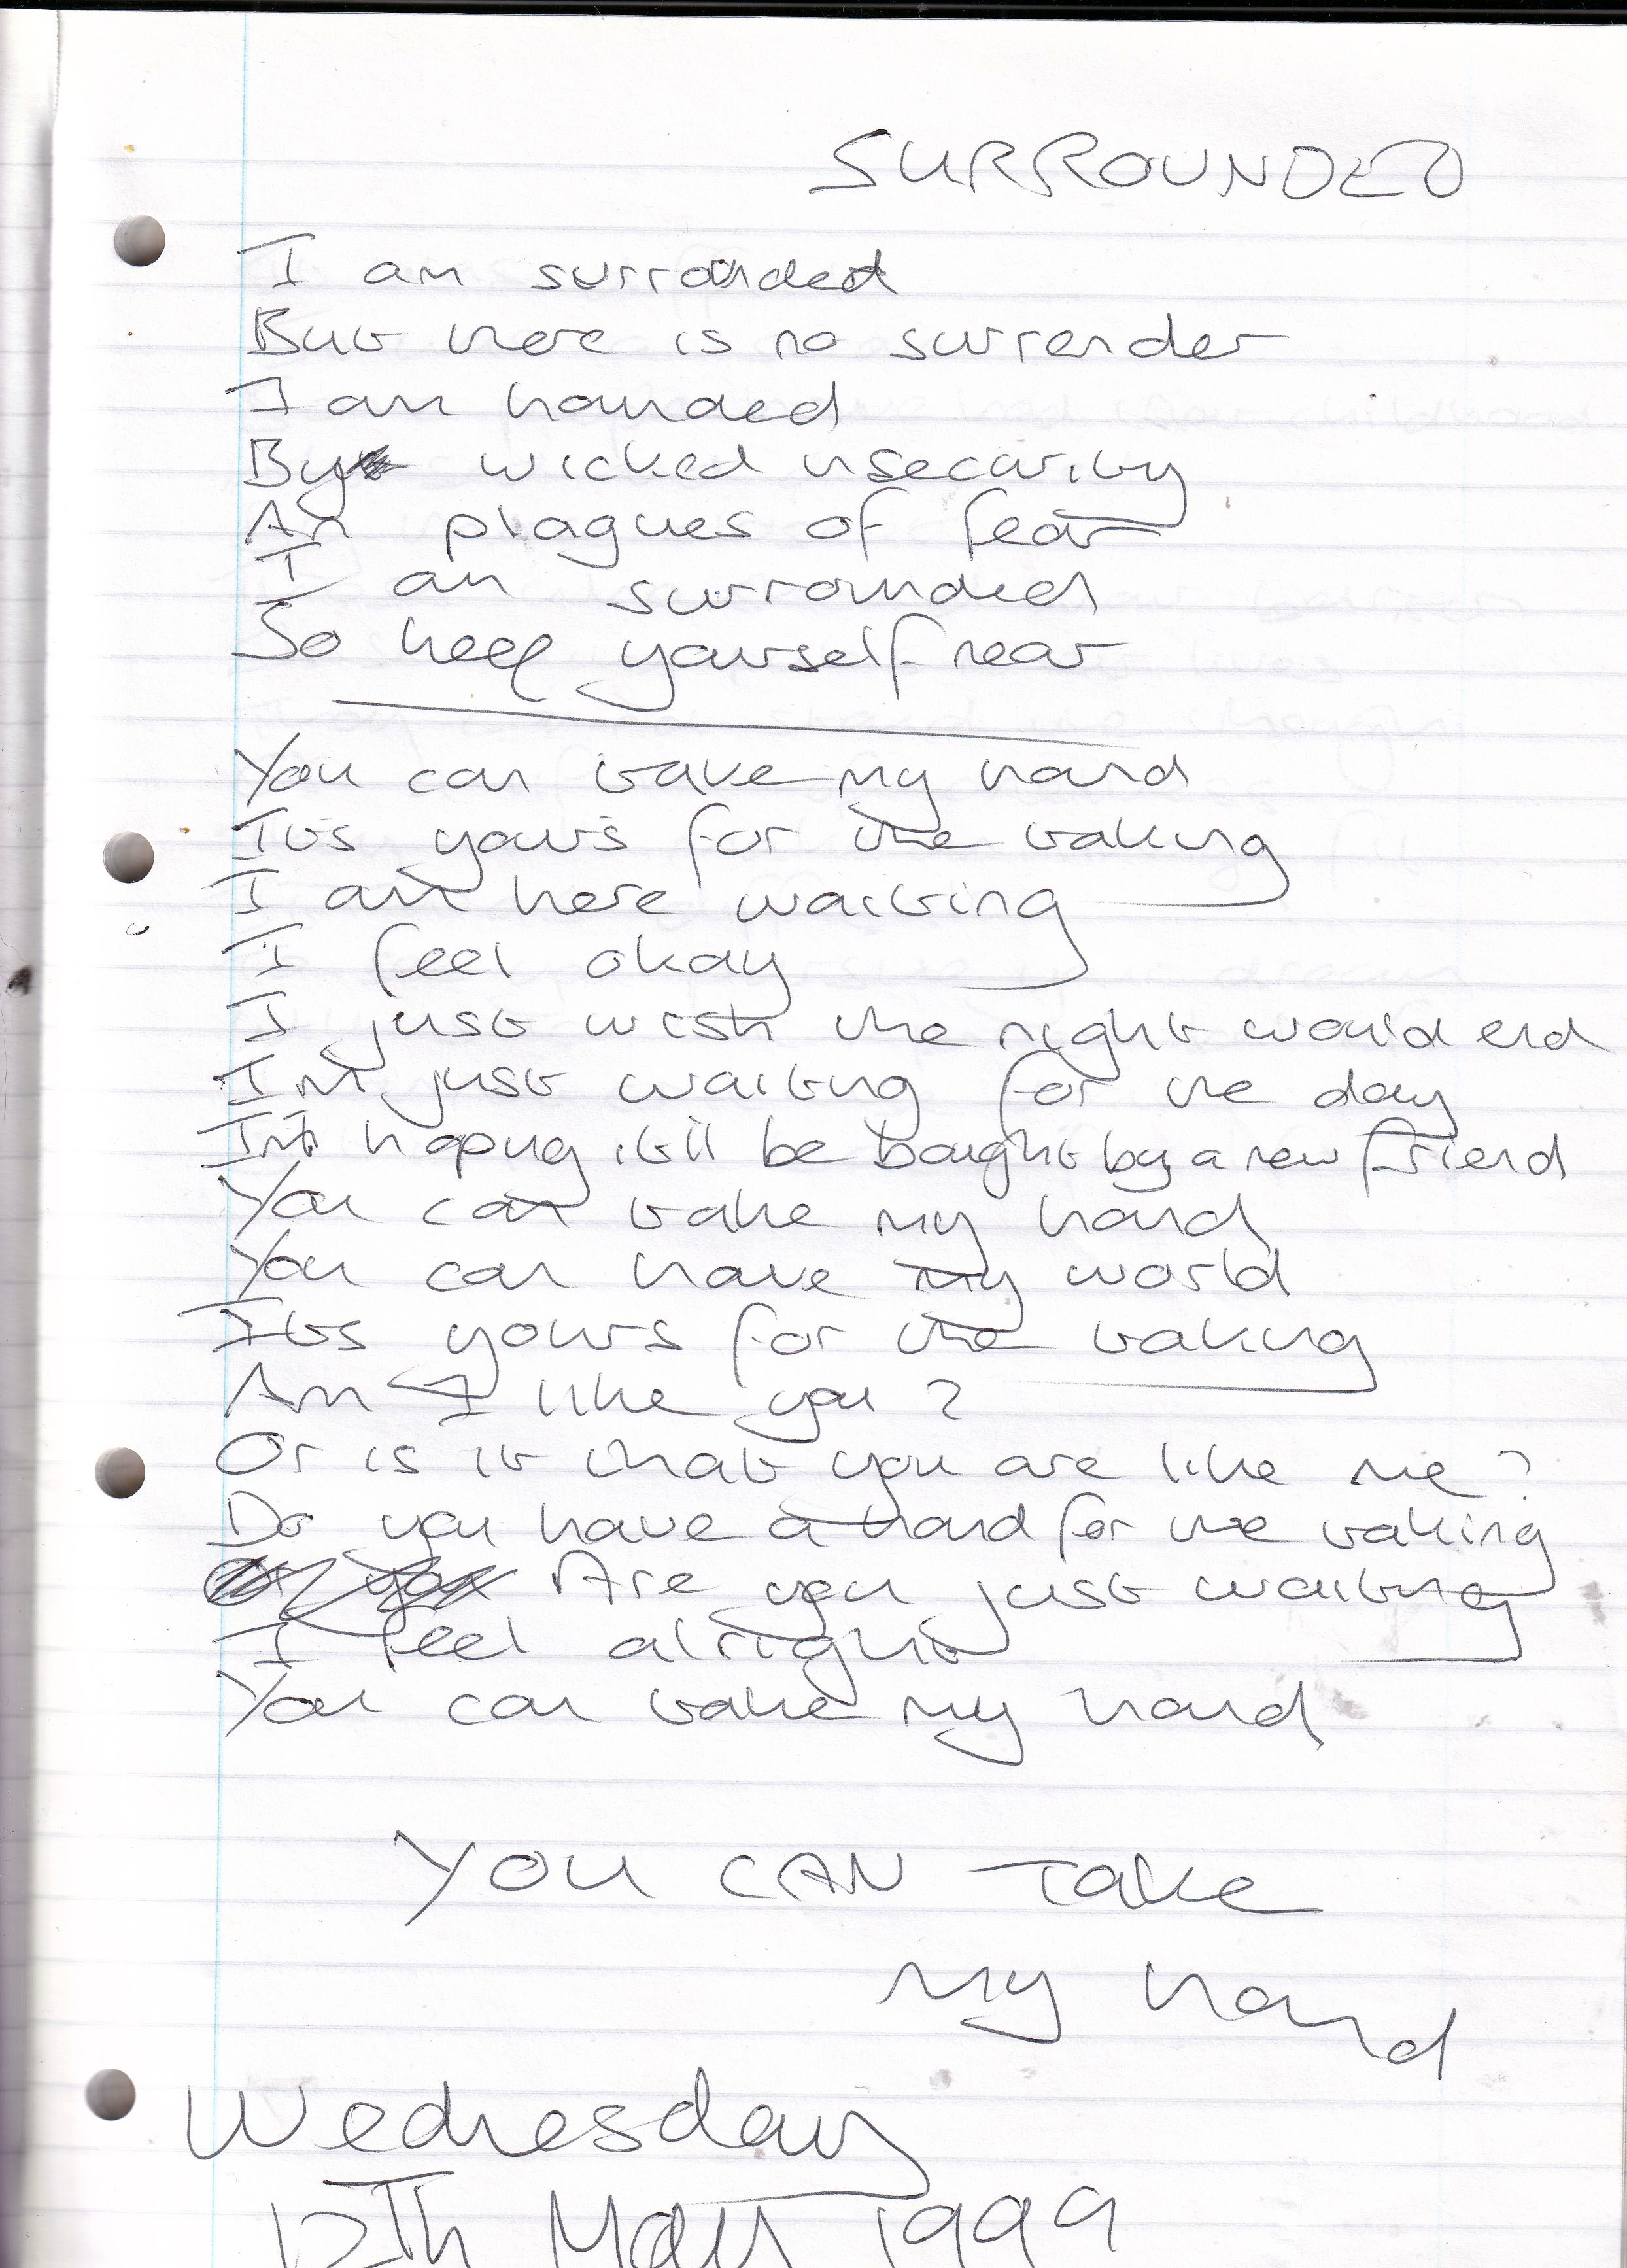 SURROUNDED
I am surrounded
But there is no surrender
I am hounded
By wicked insecurity
An plagues of fear
I am surrounded
So keep yourself near
You can take my hand
Its yours for the taking
I am here waiting
I feel okay
I just wish the night would end
Im just waiting for the day
Im hoping itll be bought by a new friend
You can take my hand
You can have my world
Its yours for the taking
Am I like you?
Or is it that you are like me?
Do you have a hand for the taking
Are you just waiting
I feel alright
You can take my hand
YOU CAN Take
my hand
Wednesday
12Th May 1999